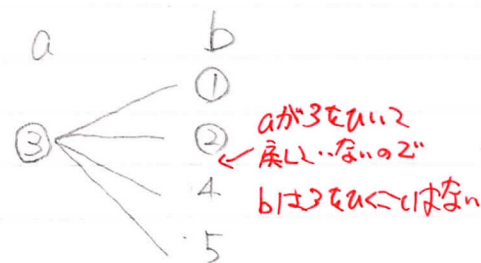 a b
①
③ ②
4
5
aが3をひいて
戻していないので
bは3をひくことはない